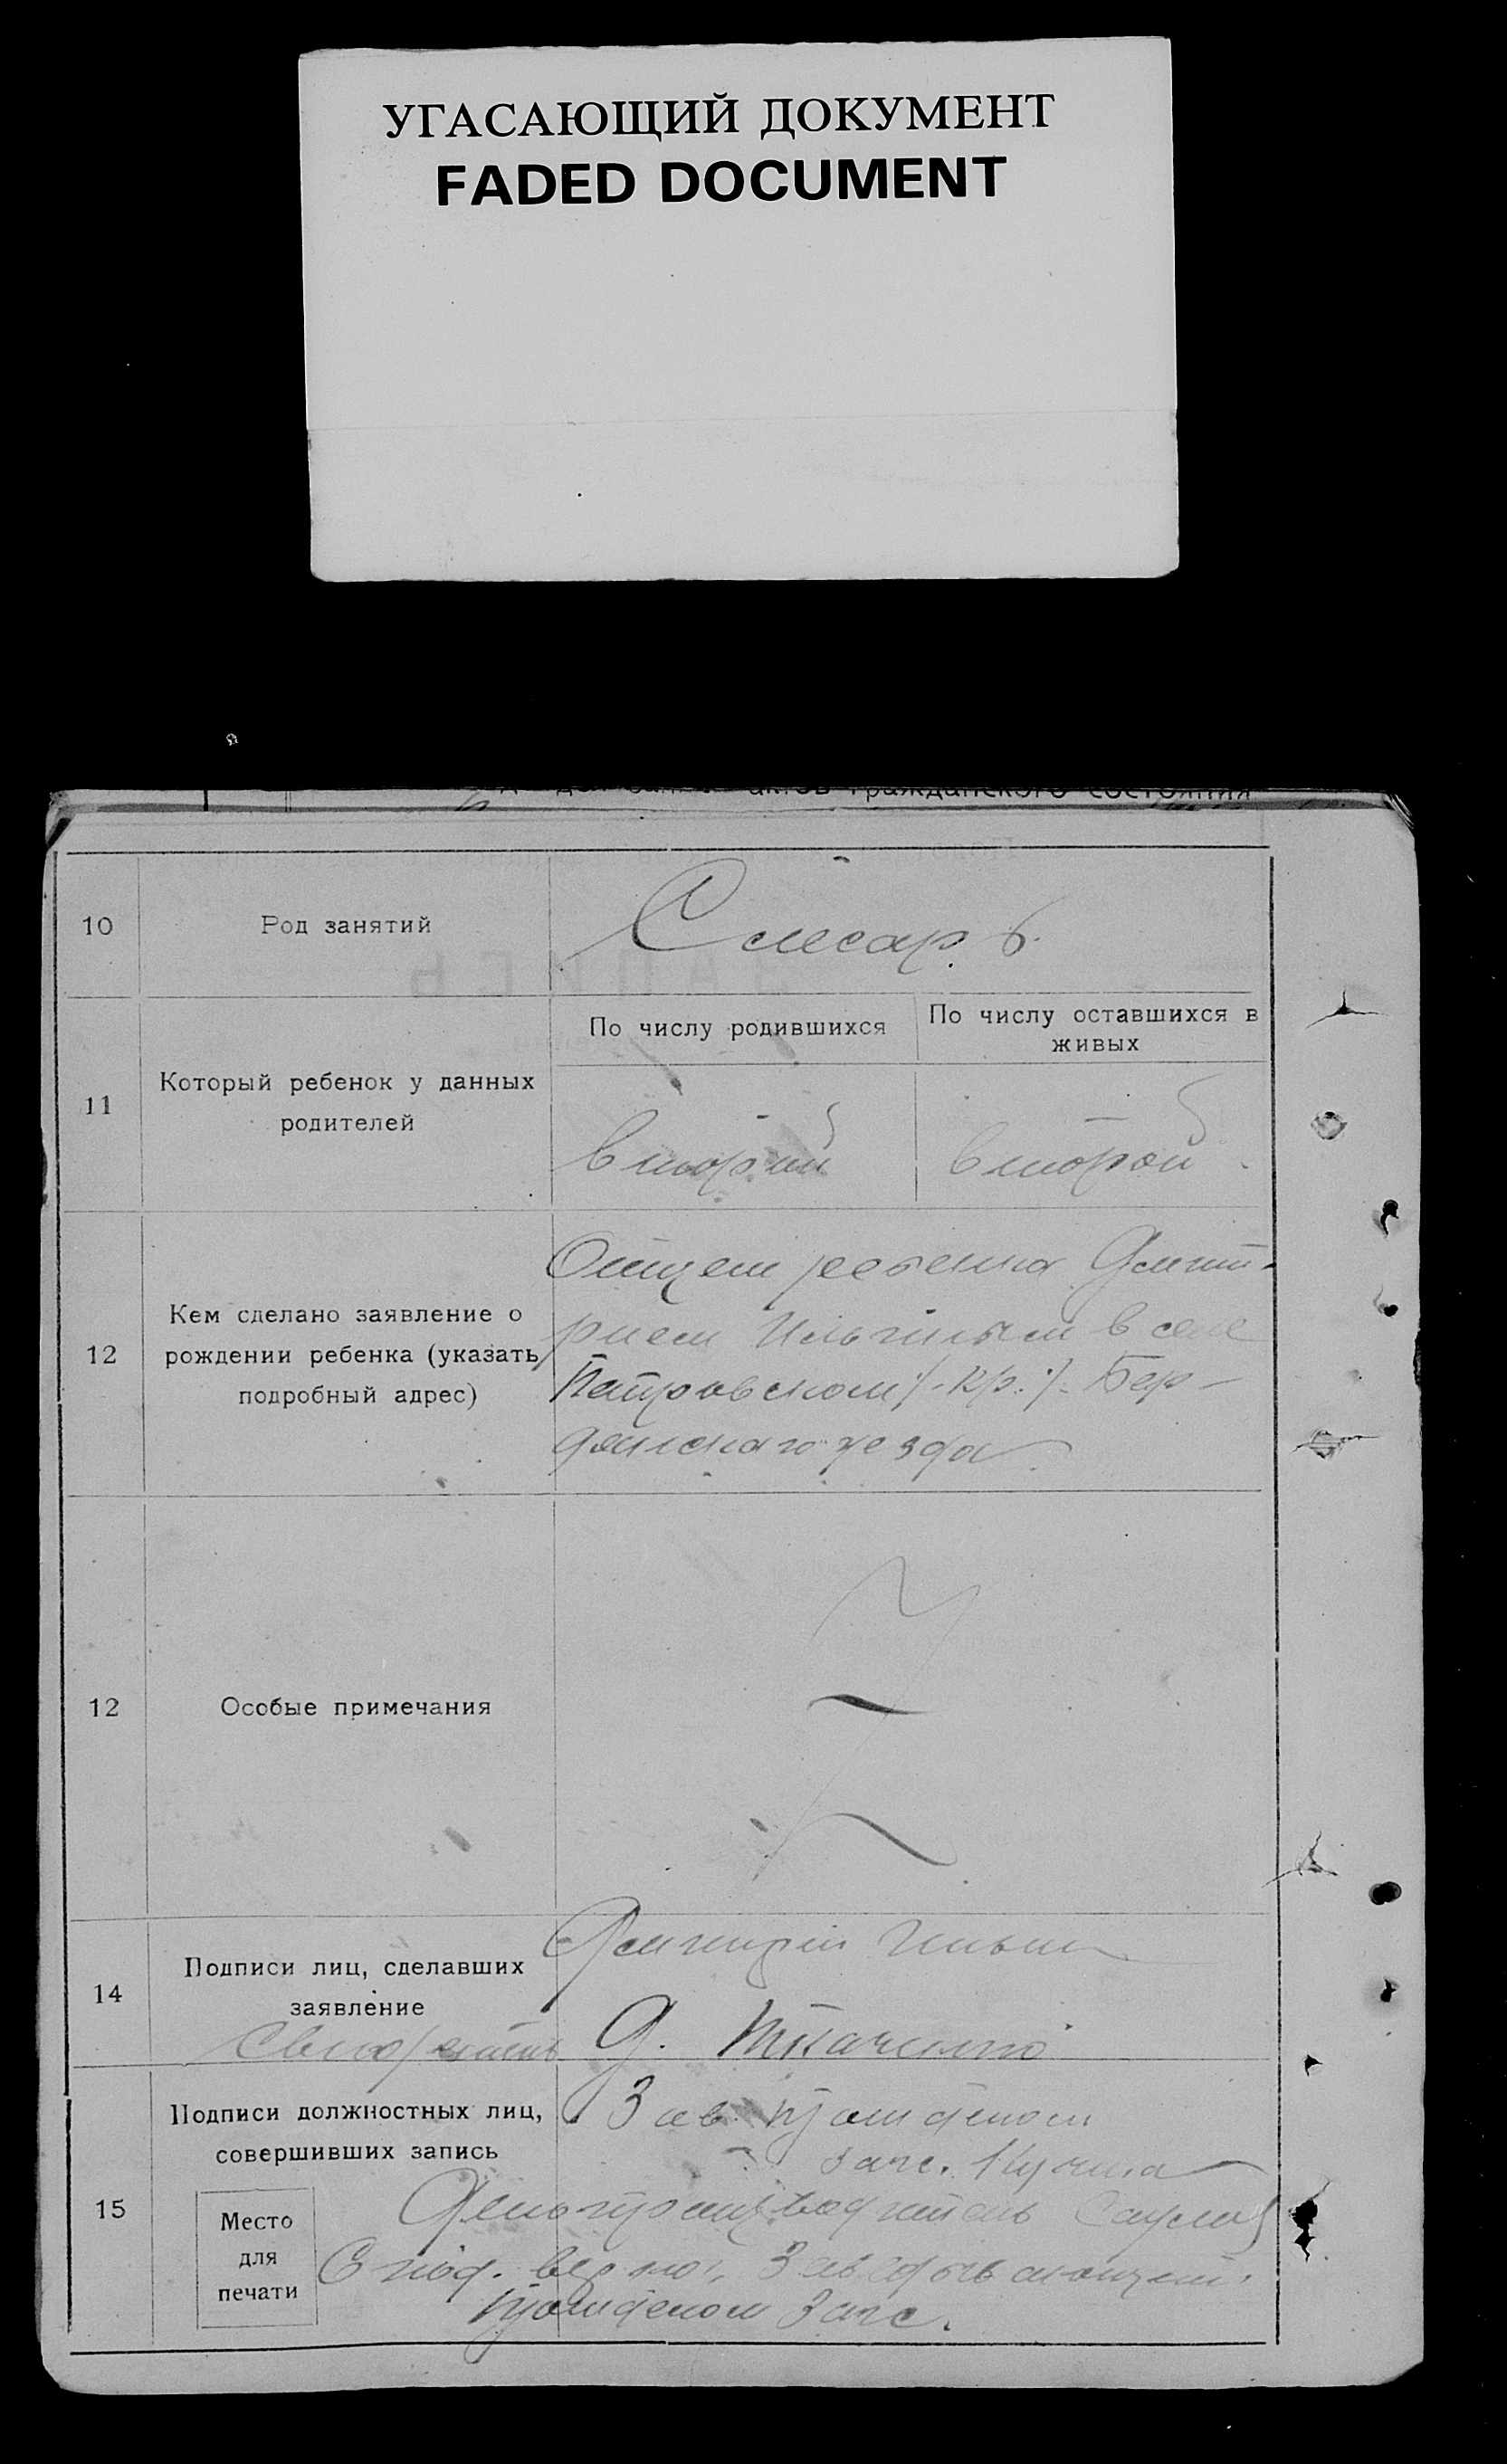 УГАСАЮЩИЙ ДОКУМЕНТ
FADED DOCUMENT
актов гражданского состояния
10
Род занятий
Слесарь.
11
Который ребенок у данных
родителей
По числу родившихся
По числу оставшихся в
живых
второй
второй
12
Кем сделано заявление о
рождении ребенка (указать
подробный адрес)
Отцем ребенка Дмит-
рием Ильиным в селе
Петровском /-кр.-/. Бер-
дянскаго уезда
12
Особые примечания
14
Подписи лиц, сделавших
заявление
Дмитрий Ильин
Свидетель
Д. Ткаченко
15
Подписи должностных лиц,
совершивших запись
Место
для
печати
Зав.
загс.
Делопроизводитель
С под. верно. Заведывающий
Загс.